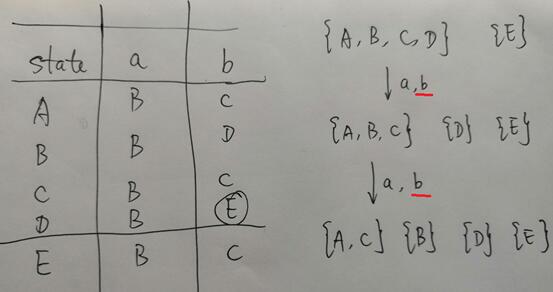 state a b
A B C
B B D
C B C
D B E
E B C
{A, B, C, D} {E}
↓ a, b
{A, B, C} {D} {E}
↓ a, b
{A, C} {B} {D} {E}